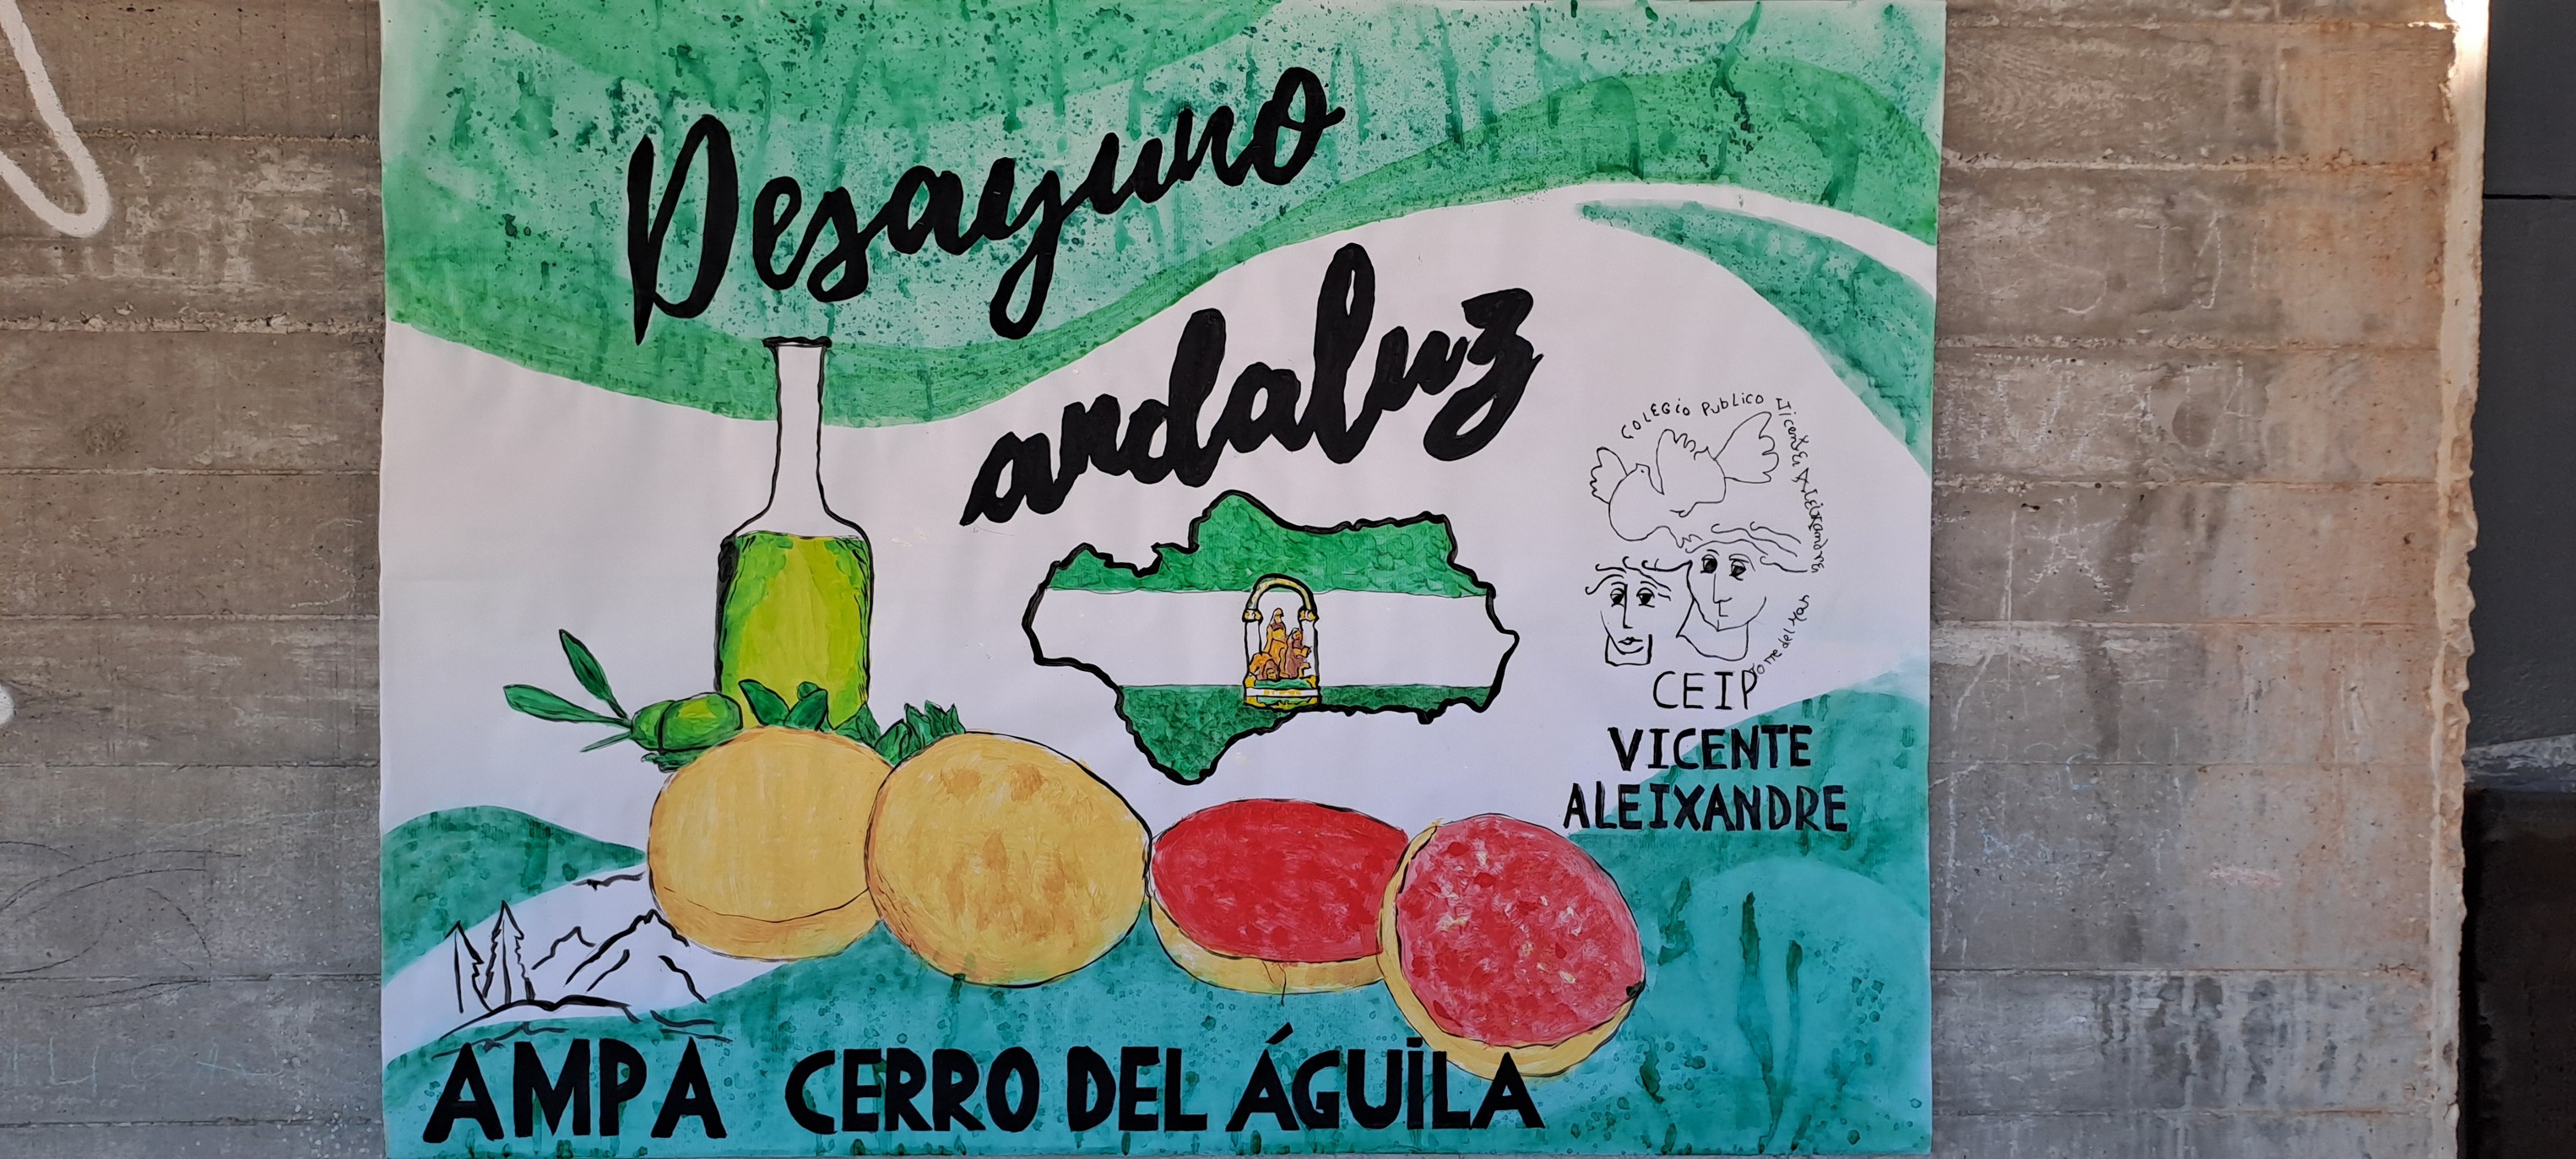 Desayuno
andaluz
COLEGIO PUBLICO Vicente Aleixandre
Torre del Mar
CEIP
VICENTE
ALEIXANDRE
AMPA CERRO DEL ÁGUILA